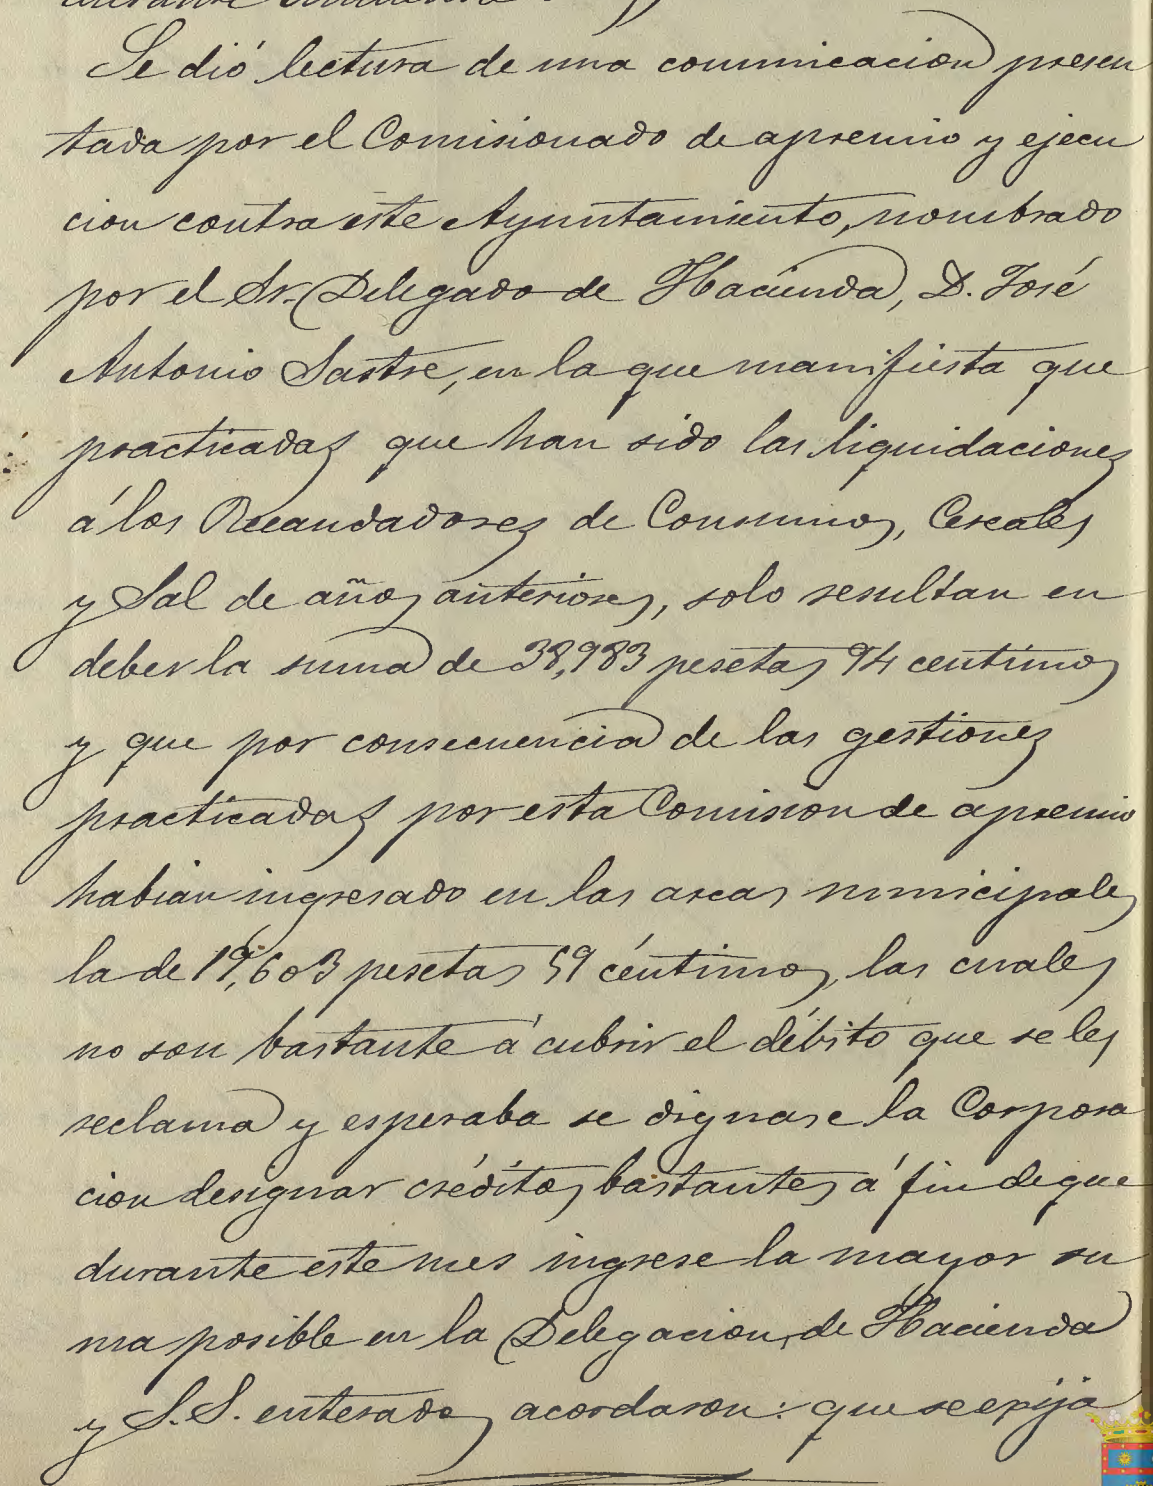 Se dió lectura de una comunicacion presen
tada por el Comisionado de apremio y ejecu
cion contra este Ayuntamiento, nombrado
por el Sr. Delegado de Hacienda, D. José
Antonio Sastre, en la que manifiesta que
practicadas que han sido las liquidaciones
á los Recaudadores de Consumos, Cereales
y Sal de años anteriores, solo resultan en
deber la suma de 38,983 pesetas 94 centimos
y que por consecuencia de las gestiones
practicadas por esta Comision de apremio
habian ingresado en las arcas municipales
la de 19,603 pesetas 59 céntimos, las cuales
no son bastante á cubrir el débito que se les
reclama y esperaba se dignase la Corpora
cion designar créditos bastantes á fin de que
durante este mes ingrese la mayor su
ma posible en la Delegacion de Hacienda
y S.S. enterados acordaron: que se exija